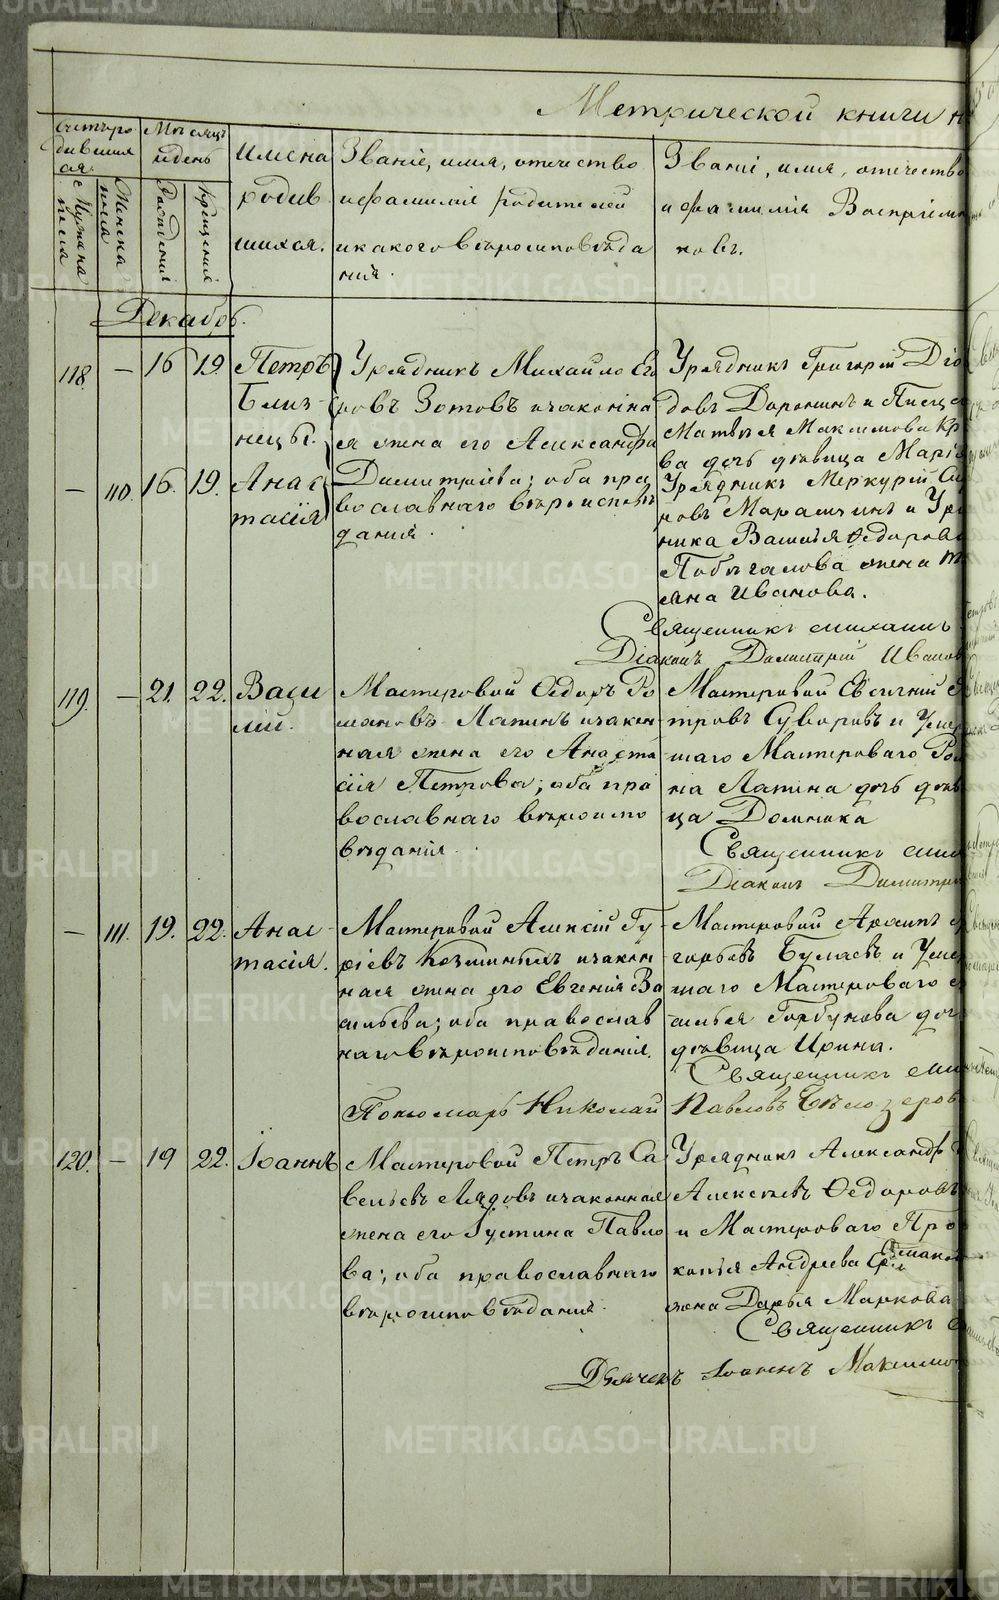 Метрической книги н
Счетъ ро
дивших
ся.
Мѣсяцъ
и день
Имена
родив
шихся.
Званіе, имя, отечество
и фамилія родителей
и какого вѣроисповѣда
нія.
Званіе, имя, отечество
и фамилія Воспріем
ковъ.
Мужска
пола
Женска
пола
Рожденія
Крещенія
Декабрь.
118. — 16 19 Петръ
Близ
нецы.
Урядникъ Михайло Его
ровъ Зотовъ и законна
я жена его Александра
Димитріева; оба пра
вославнаго вѣроисповѣ
данія.
Урядникъ Григорій Діо
довъ Доронинъ и Писца
Матвѣя Максимова Кр
ва дочь дѣвица Марія
— 110. 16. 19. Анас
тасія
Урядникъ Меркурій Си
новъ Марамчинъ и Уря
ника Васил[ь]я Ѳедорова
Побѣгалова жена Т
яна Иванова.
Священникъ Михаилъ
Діаконъ Димитрій Иванов
119. — 21. 22. Васи
лій.
Мастеровой Ѳедоръ Ро
мановъ Лапинъ и закон
ная жена его Анаста
сія Петрова; оба пра
вославнаго вѣроиспо
вѣданія.
Мастеровой Евгеній П
тровъ Суворовъ и Умер
шаго Мастероваго Ром
на Лапина дочь дѣв
ца Домника
Священникъ Мих
Діаконъ Димитрі
— 111. 19. 22. Анас
тасія.
Мастеровой Алексій Гу
ріевъ Козминыхъ и закон
ная жена его Евгенія Ва
сильева; оба православ
наго вѣроисповѣданія.
Мастеровой Архипъ
горьевъ Булаевъ и Умер
шаго Мастероваго
силья Горбунова доч
дѣвица Ирина.
Священникъ Ми
Пономарь Николай Павловъ Бѣлозеров
120. — 19 22. Іоаннъ
Мастеровой Петръ Са
вельевъ Лядовъ и законная
жена его Іустина Павло
ва; оба православнаго
вѣроисповѣданія.
Урядникъ Александръ
Алексѣевъ Ѳедоровъ
и Мастероваго Про
копія Андреева
жена Дарья Маркова
Священникъ
Дьячекъ Іоаннъ Максимо
METRIKI.GASO-URAL.RU